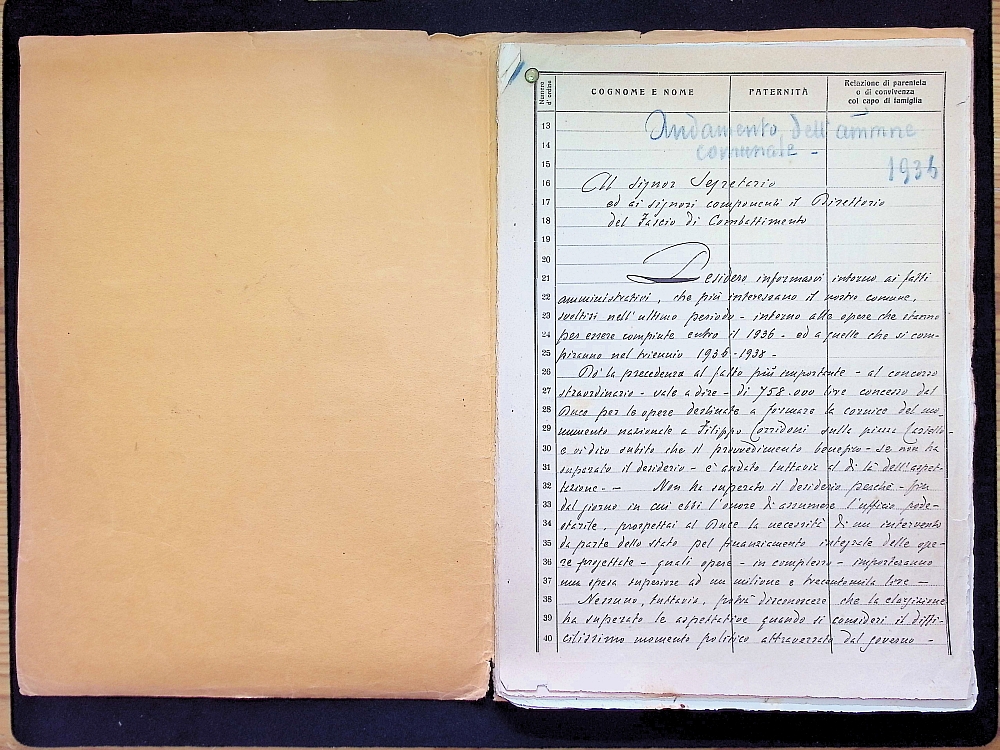 Numero d'ordine
COGNOME E NOME
PATERNITÀ
Relazione di parentela
o di convivenza
col capo di famiglia
Andamento dell'ammne
comunale -
1936
13
14
15
16 Al signor Segretario
17 ed ai signori componenti il Direttorio
18 del Fascio di Combattimento
19
20
21 Desidero informarvi intorno ai fatti
22 amministrativi, che più interessano il nostro comune,
23 svoltisi nell'ultimo periodo - intorno alle opere che stanno
24 per essere compiute entro il 1936 - ed a quelle che si com-
25 piranno nel triennio 1936-1938 -
26 Do la precedenza al fatto più importante - al concorso
27 straordinario - vale a dire - di 758.000 lire concesso dal
28 Duce per le opere destinate a formare la cornice del mo-
29 numento nazionale a Filippo Corridoni sulla piazza Castello -
30 e vi dico subito che il provvedimento benefico - se non ha
31 superato il desiderio - è andato tuttavia al di là dell'aspet-
32 tazione. - Non ha superato il desiderio perchè - fin
33 dal giorno in cui ebbi l'onore di assumere l'ufficio pode-
34 starile, prospettai al Duce la necessità di un intervento
35 da parte dello stato pel finanziamento integrale delle ope-
36 re progettate - quali opere - in complesso - importeranno
37 una spesa superiore ad un milione e trecentomila lire -
38 Nessuno, tuttavia, potrà disconoscere che la elargizione
39 ha superato le aspettative quando si consideri il diffi-
40 cilissimo momento politico attraversato dal governo -